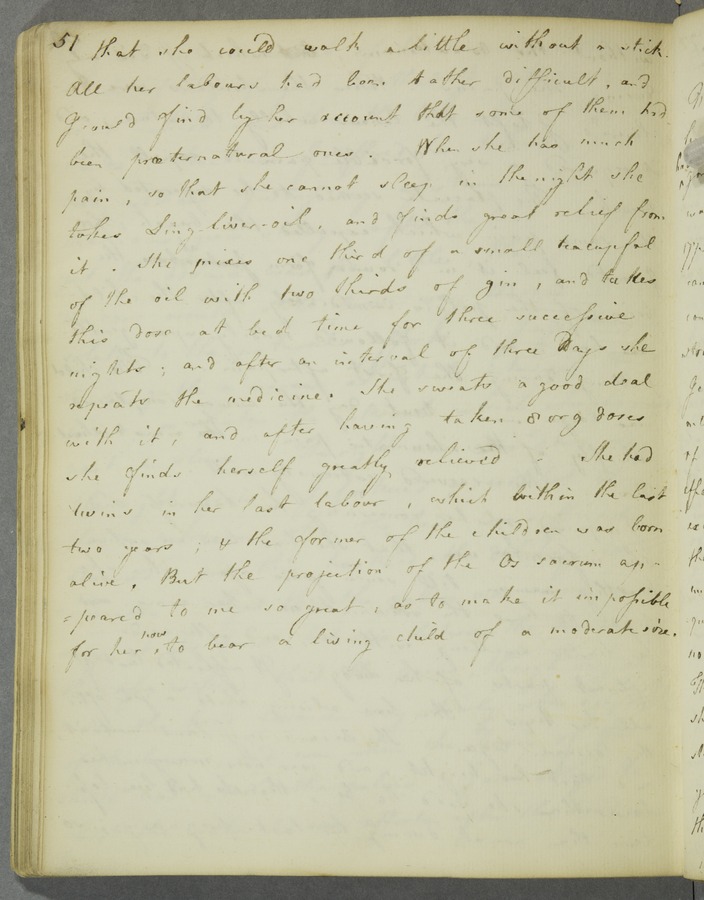 51 that she could walk a little without a stick.
All her labours had been rather difficult, and
I could find by her account that some of them had
been præternatural ones. When she has much
pain, so that she cannot sleep in the night she
takes Ling-liver-oil, and finds great relief from
it. She mixes one third of a small teacupful
of the oil with two thirds of gin, and takes
this dose at bed time for three successive
nights; and after an interval of three days she
repeats the medicine. She sweats a good deal
with it, and after having taken 8 or 9 doses
she finds herself greatly relieved. She had
twins in her last labour, which within the last
two years; & the former of the children was born
alive. But the projection of the Os sacrum ap-
-peared to me so great, as to make it impossible
for her now to bear a living child of a moderate size.